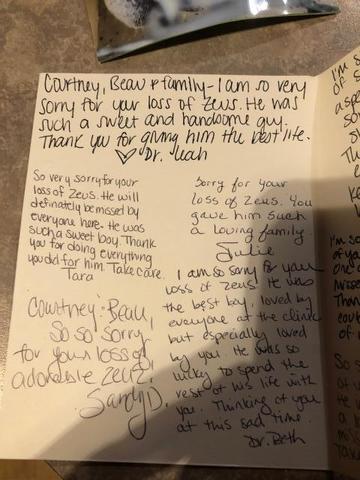 Courtney, Beau & family - I am so very
sorry for your loss of Zeus. He was
such a sweet and handsome guy.
Thank you for giving him the best life.
♡ Dr. Leah
So very sorry for your
loss of Zeus. He will
definately be missed by
everyone here. He was
such a sweet boy. Thank
you for doing everything
you did for him. Take care.
Tara
Sorry for your
loss of Zeus. You
gave him such
a loving family.
Julie
Courtney & Beau,
So so sorry
for your loss of
adorable Zeus!
Sandy D.
I am so sorry for your
loss of Zeus. He was
the best boy, loved by
everyone at the clinic
but especially loved
by you. He was so
lucky to spend the
rest of his life with
you. Thinking of you
at this sad time.
Dr. Beth
I'm s
of